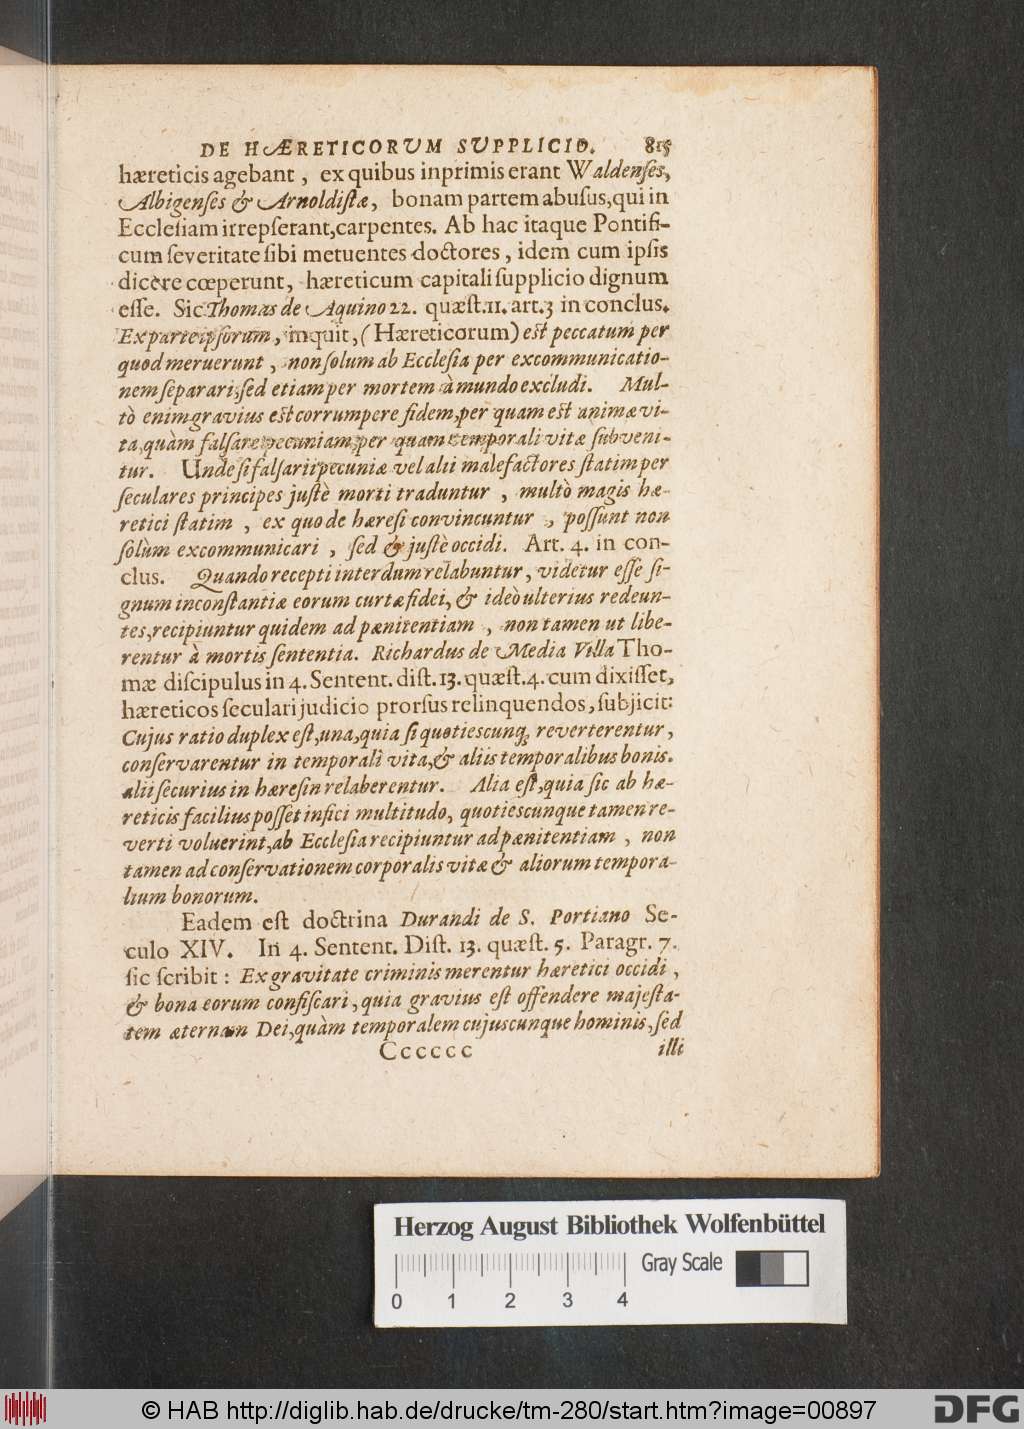 DE HÆRETICORUM SUPPLICIO. 815
hæreticis agebant, ex quibus inprimis erant Waldenses,
Albigenses & Arnoldistæ, bonam partem abusus, qui in
Ecclesiam irrepserant, carpentes. Ab hac itaque Pontifi-
cum severitate sibi metuentes doctores, idem cum ipsis
dicere cœperunt, hæreticum capitali supplicio dignum
esse. Sic Thomas de Aquino 22. quæst. 11. art. 3 in conclus.
Ex parte ipsorum, inquit, (Hæreticorum) est peccatum per
quod meruerunt, non solum ab Ecclesia per excommunicatio-
nem separari, sed etiam per mortem à mundo excludi. Mul-
tò enim gravius est corrumpere fidem, per quam est animæ vi-
ta, quàm falsare pecuniam, per quam temporali vitæ subveni-
tur. Unde si falsarii pecuniæ vel alii malefactores statim per
seculares principes justè morti traduntur, multò magis hæ-
retici statim, ex quo de hæresi convincuntur, possunt non
solùm excommunicari, sed & justè occidi. Art. 4. in con-
clus. Quando recepti interdum relabuntur, videtur esse si-
gnum inconstantiæ eorum curtæ fidei, & ideò ulterius redeun-
tes, recipiuntur quidem ad pænitentiam, non tamen ut libe-
rentur à mortis sententia. Richardus de Media Villa Tho-
mæ discipulus in 4. Sentent. dist. 13. quæst. 4. cum dixisset,
hæreticos seculari judicio prorsus relinquendos, subjicit:
Cujus ratio duplex est, una, quia si quotiescunq; reverterentur,
conservarentur in temporali vita, & aliis temporalibus bonis.
alii securius in hæresin relaberentur. Alia est, quia sic ab hæ-
reticis facilius posset infici multitudo, quotiescunque tamen re-
verti voluerint, ab Ecclesia recipiuntur ad pænitentiam, non
tamen ad conservationem corporalis vitæ & aliorum tempora-
lium bonorum.
Eadem est doctrina Durandi de S. Portiano Se-
culo XIV. In 4. Sentent. Dist. 13. quæst. 5. Paragr. 7.
sic scribit: Ex gravitate criminis merentur hæretici occidi,
& bona eorum confiscari, quia gravius est offendere majesta-
tem æternam Dei, quàm temporalem cujuscunque hominis, sed
Cccccc illi
Herzog August Bibliothek Wolfenbüttel
Gray Scale
0 1 2 3 4
© HAB http://diglib.hab.de/drucke/tm-280/start.htm?image=00897
DFG